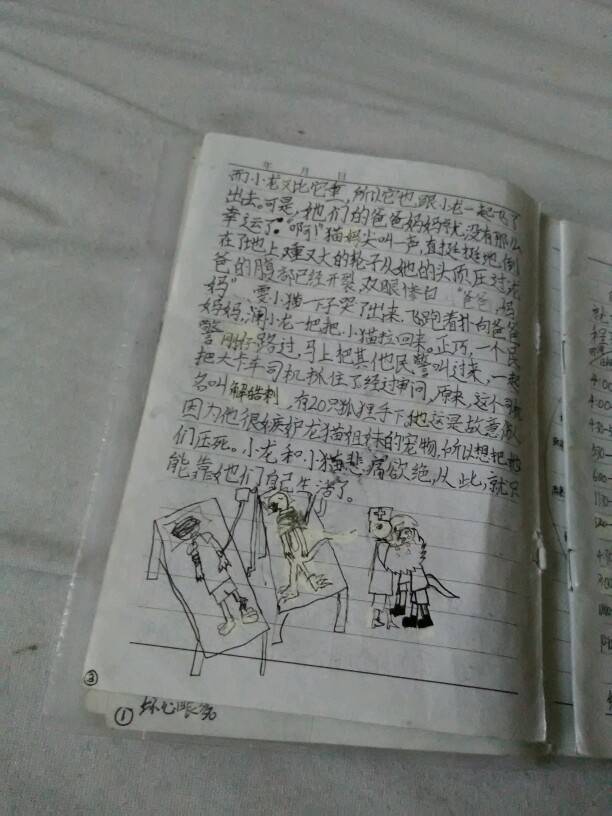 年 月 日
而小龙又比它重,所以它也跟小龙一起飞了
出去。可是,他们的爸爸妈妈就没有那么
幸运了。"啊!"猫妈尖叫一声,直挺挺地倒
在了地上,重又大的轮子从她的头顶压过,龙
爸的腹部已经开裂,双眼惨白。"爸爸,妈
妈"雯小猫一下子哭了出来,飞跑着扑向爸爸
妈妈,澜小龙一把把小猫拉回来。正巧,一个民
警刚好路过,马上把其他民警叫过来,一起
把大卡车司机抓住了经过审问,原来,这个司机
名叫解皓刺,有20只狐狸手下他这是故意
因为他很嫉妒龙猫姐妹的宠物,所以想把她
们压死。小龙和小猫悲痛欲绝,从此,就只
能靠她们自己生活了。
③
① 坏心眼